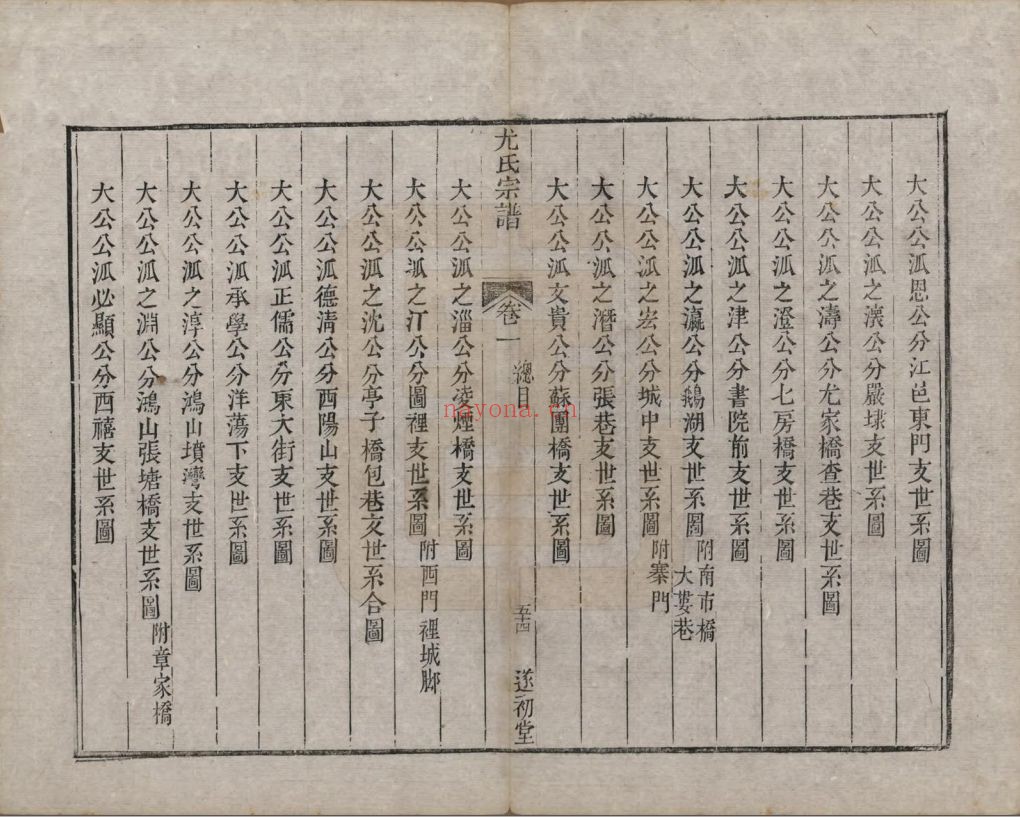 大公公派恩公分江邑東門支世系圖
大公公派之漢公分嚴埭支世系圖
大公公派之濤公分尤家橋查巷支世系圖
大公公派之澄公分七房橋支世系圖
大公公派之津公分書院前支世系圖
大公公派之瀛公分鵝湖支世系圖 附南市橋 大婁巷
大公公派之宏公分城中支世系圖 附寨門
大公公派之潛公分張巷支世系圖
大公公派文貴公分蘇團橋支世系圖
尤氏宗譜 卷一 總目 五十四 遂初堂
大公公派之淄公分凌煙橋支世系圖
大公公派之汀公分圖裡支世系圖 附西門裡城腳
大公公派之沈公分亭子橋包巷支世系合圖
大公公派德清公分西陽山支世系圖
大公公派正儒公分東大街支世系圖
大公公派承學公分洋蕩下支世系圖
大公公派之淳公分鴻山墳灣支世系圖
大公公派之淵公分鴻山張塘橋支世系圖 附章家橋
大公公派必顯公分西禧支世系圖
nayona.cn